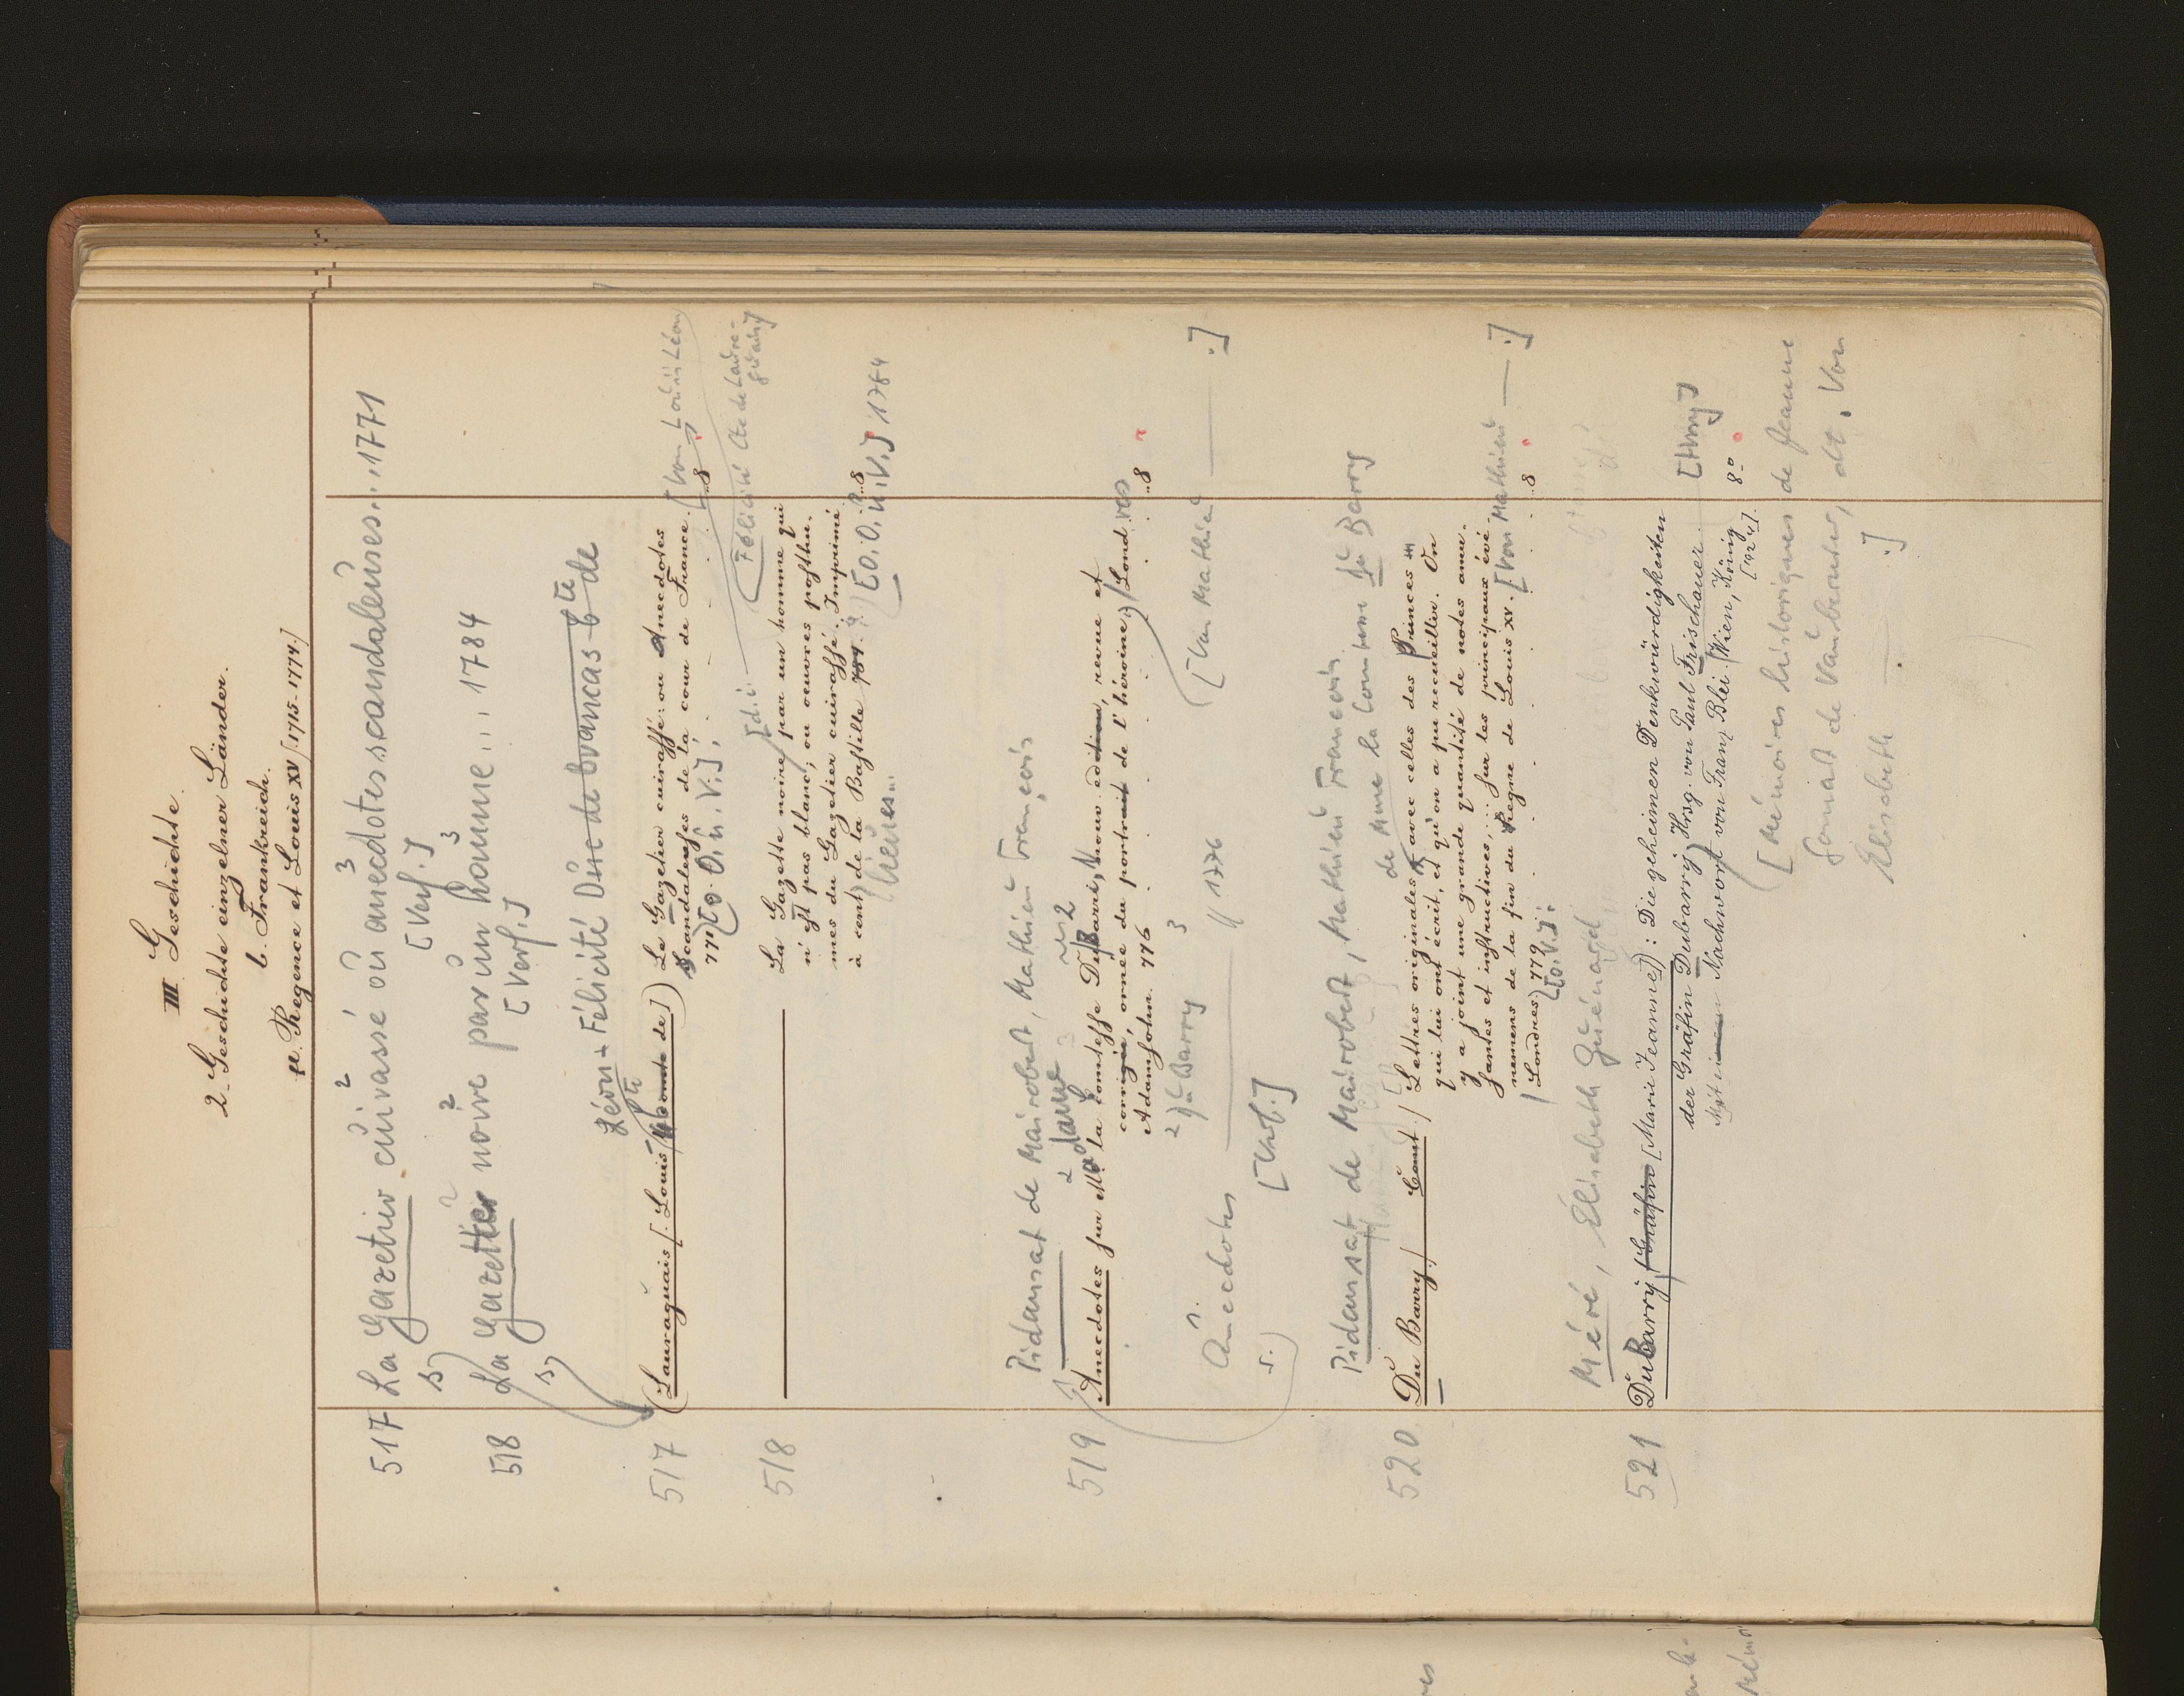 III. Geschichte.
2. Geschichte einzelner Länder.
b. Frankreich.
α. Regence et Louis XV [1715-1774.]
517 La Gazetier cuirassé ou anecdotes scandaleuses... 1771
s) [Verf.]
518 La Gazette noire par un homme... 1784
s) [Verf.]
Léon-Félicité Duc de brancas Cte de
517 (Lauraguais [Louis Cte de]) Le Gazetier cuirassé: ou Anecdotes [Von Louis Léon
scandaleuses de la cour de France. 8
771 [O.O.u.V.];
Félicité Cte de Laura-
guais]
518 ——— La Gazette noire, par un homme qui
n'est pas blanc; ou oeuvres posthu-
mes du Gazetier cuirassé. Imprimé
à cent lieues... de la Bastille 784. 8
[O.O.u.V.] 1784
Pidansat de Mairobert, Mathieu François
519 Anecdotes sur Madame la Comtesse DuBarri, Nouv. edition, revue et
corrigée, ornée du portrait de l'héroine, Londres
Adamsohn. 776 8
Anecdotes Barry 1776 [Von Mathieu — .]
s. [Verf.]
Pidansat de Mairobert, Mathieu François
de Mme la Comtesse du Barry
520 Du Barry / Comt / Lettres originales avec celles des Princes etc
qui lui ont écrit, et qu'on a pu recueillir. On
y a joint une grande quantité de notes amu-
santes et instructives, ... sur les principaux évé-
nemens de la fin du Regne de Louis XV. [Von Mathieu — .]
Londres. 779. 8
[o.V.];
Méré, Élisabeth Guénard
521 DuBarry, Gräfin [Marie Jeanne]: Die geheimen Denkwürdigkeiten
der Gräfin Dubarry, Hrsg. von Paul Frischauer. [Hrsg]
Mit einem Nachwort von Franz Blei. Wien, König 8°
[1924].
[Mémoires historiques de Jeanne
Gomart de Vaubernier, dt, Von
Elisabeth — .]